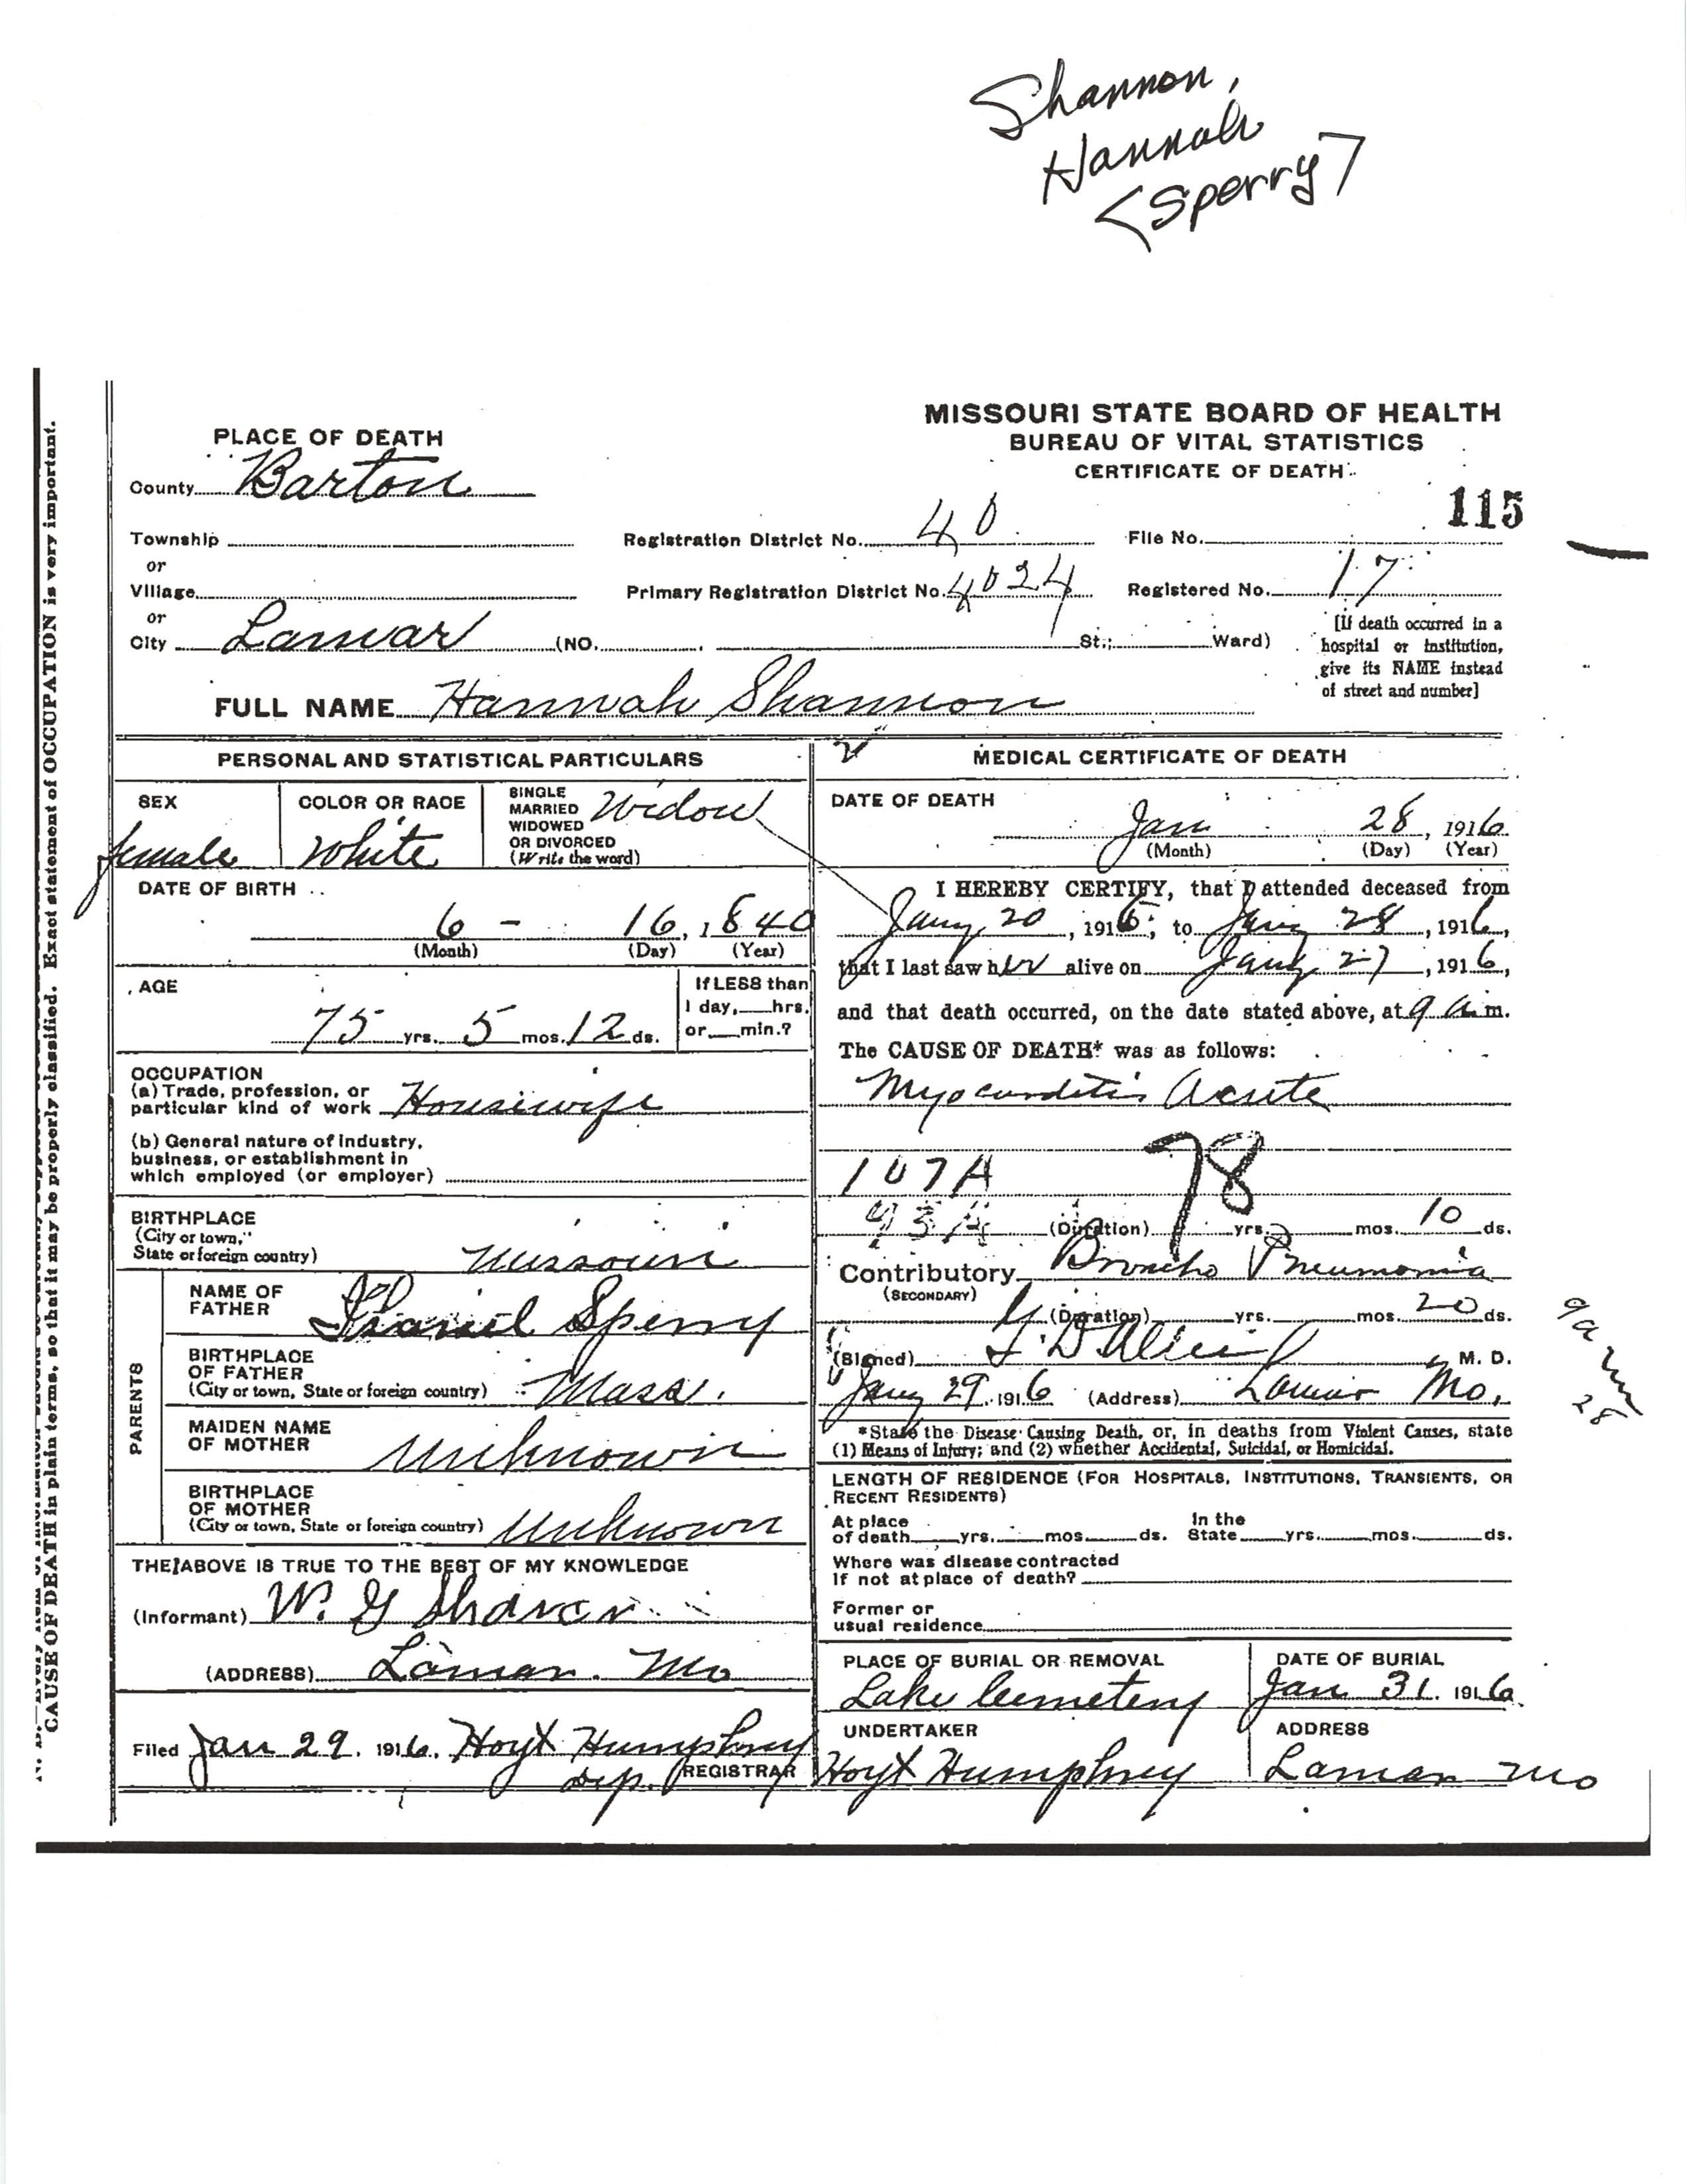 Shannon,
Hannah
<Sperry>
MISSOURI STATE BOARD OF HEALTH
BUREAU OF VITAL STATISTICS
CERTIFICATE OF DEATH
115
PLACE OF DEATH
County Barton
Township
or
Village
or
City Lamar (NO. St.; Ward)
Registration District No. 40
File No.
Primary Registration District No. 4024
Registered No. 17
[If death occurred in a
hospital or institution,
give its NAME instead
of street and number]
FULL NAME Hannah Shannon
PERSONAL AND STATISTICAL PARTICULARS
SEX
female
COLOR OR RACE
White
SINGLE
MARRIED
WIDOWED
OR DIVORCED
(Write the word)
Widow
DATE OF BIRTH
6 - 16, 1840
(Month) (Day) (Year)
AGE
75 yrs. 5 mos. 12 ds.
If LESS than
1 day, hrs.
or min.?
OCCUPATION
(a) Trade, profession, or
particular kind of work Housewife
(b) General nature of industry,
business, or establishment in
which employed (or employer)
BIRTHPLACE
(City or town,
State or foreign country) Missouri
PARENTS
NAME OF
FATHER Sperry
BIRTHPLACE
OF FATHER
(City or town, State or foreign country) Mass.
MAIDEN NAME
OF MOTHER Unknown
BIRTHPLACE
OF MOTHER
(City or town, State or foreign country) Unknown
THE ABOVE IS TRUE TO THE BEST OF MY KNOWLEDGE
(Informant) W. G
(ADDRESS) Lamar. Mo
Filed Jan 29. 1916, Hoyt Humphrey
Dep. REGISTRAR
MEDICAL CERTIFICATE OF DEATH
DATE OF DEATH
Jan 28, 1916
(Month) (Day) (Year)
I HEREBY CERTIFY, that I attended deceased from
Jany 20, 1916; to Jany 28, 1916,
that I last saw her alive on Jany 27, 1916,
and that death occurred, on the date stated above, at 9 a.m.
The CAUSE OF DEATH* was as follows:
Myocarditis Acute
107A 78
93A (Duration) yrs. mos. 10 ds.
Contributory Broncho Pneumonia
(SECONDARY)
(Duration) yrs. mos. 20 ds.
(Signed) M. D.
Jany 29, 1916 (Address) Lamar Mo.
*State the Disease Causing Death, or, in deaths from Violent Causes, state
(1) Means of Injury; and (2) whether Accidental, Suicidal, or Homicidal.
LENGTH OF RESIDENCE (FOR HOSPITALS, INSTITUTIONS, TRANSIENTS, OR
RECENT RESIDENTS)
At place
of death yrs. mos ds.
In the
State yrs. mos. ds.
Where was disease contracted
If not at place of death?
Former or
usual residence
PLACE OF BURIAL OR REMOVAL
Lake Cemetery
DATE OF BURIAL
Jan 31. 1916
UNDERTAKER
Hoyt Humphrey
ADDRESS
Lamar Mo
28
CAUSE OF DEATH in plain terms, so that it may be properly classified. Exact statement of OCCUPATION is very important.